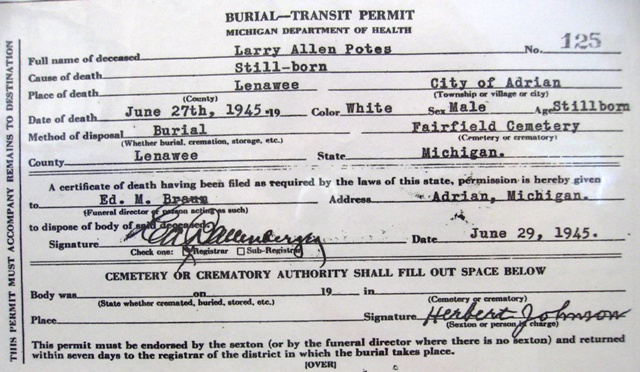 BURIAL—TRANSIT PERMIT
MICHIGAN DEPARTMENT OF HEALTH
Full name of deceased Larry Allen Potes No. 125
Cause of death Still-born
Place of death Lenawee City of Adrian
(County) (Township or village or city)
Date of death June 27th, 1945. 19 Color White Sex Male Age Stillborn
Method of disposal Burial Fairfield Cemetery
(Whether burial, cremation, storage, etc.) (Cemetery or crematory)
County Lenawee State Michigan.
A certificate of death having been filed as required by the laws of this state, permission is hereby given
to Ed. M. Braun Address Adrian, Michigan.
(Funeral director or person acting as such)
to dispose of body of said deceased.
Signature Date June 29, 1945.
Check one: Registrar Sub-Registrar
CEMETERY OR CREMATORY AUTHORITY SHALL FILL OUT SPACE BELOW
Body was on 19 in
(State whether cremated, buried, stored, etc.) (Cemetery or crematory)
Place Signature Herbert Johnson
(Sexton or person in charge)
This permit must be endorsed by the sexton (or by the funeral director where there is no sexton) and returned
within seven days to the registrar of the district in which the burial takes place.
[OVER]
THIS PERMIT MUST ACCOMPANY REMAINS TO DESTINATION